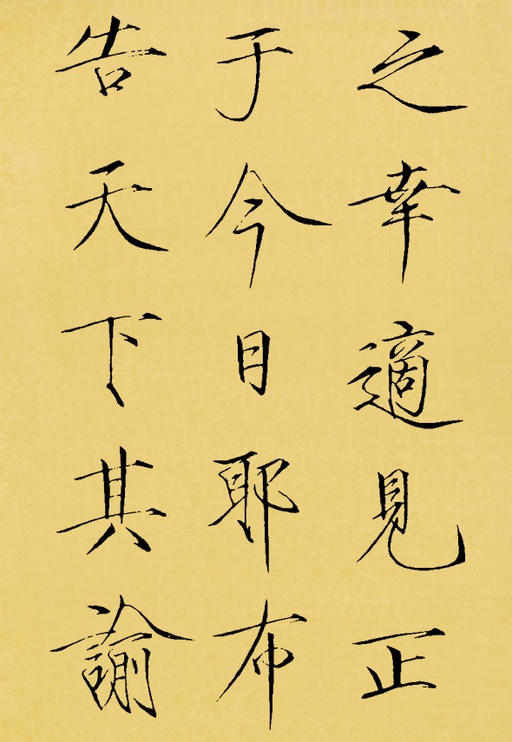 之幸適見正
于今日耶布
告天下其諭